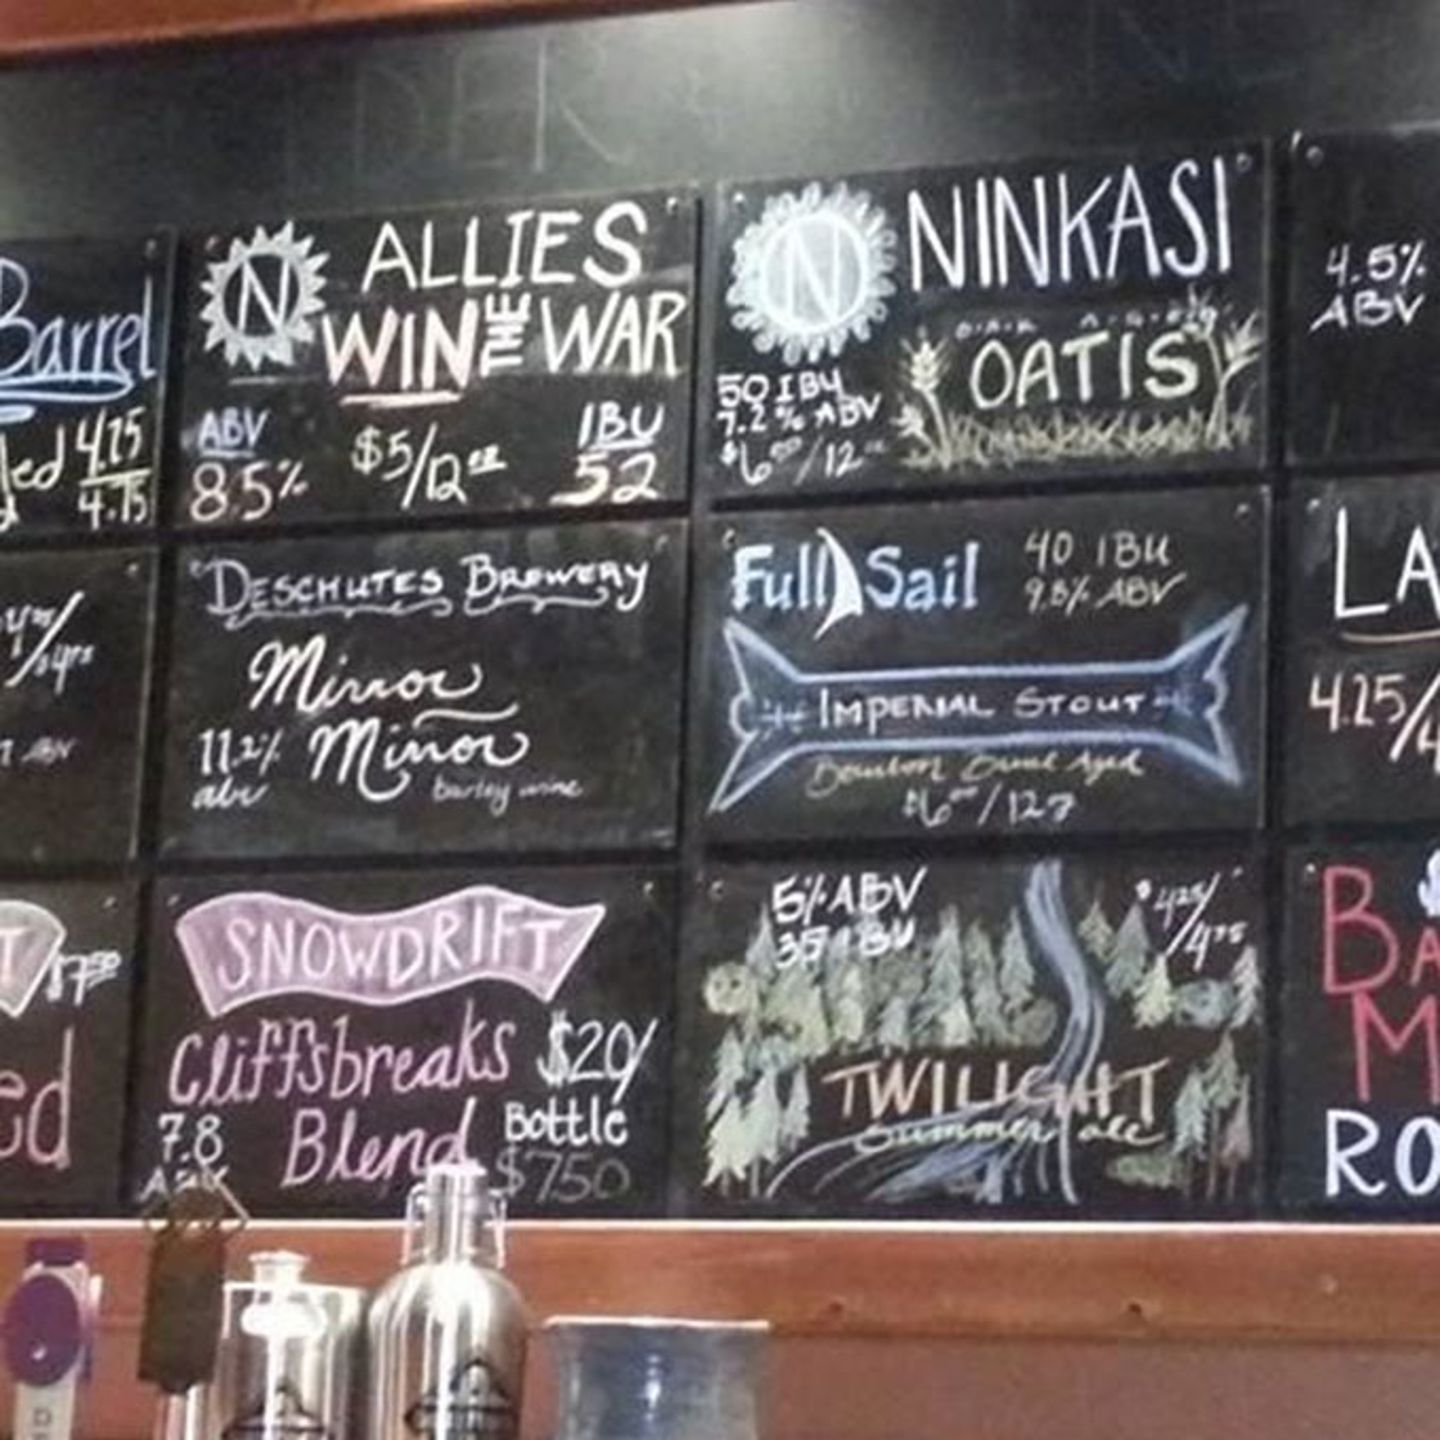 Barrel
4.75
4.75
N
ALLIES
WIN THE WAR
ABV
8.5%
$5/12oz
IBU
52
N
NINKASI
OATIS
50 IBU
7.2% ABV
$6.00/12
4.5%
ABV
DESCHUTES BREWERY
Mirror
Mirror
11.2%
abv
barley wine
Full Sail
40 IBU
9.8% ABV
IMPERIAL STOUT
Bourbon Barrel Aged
$6.00/12oz
LA
4.25/4
$7.50
ed
SNOWDRIFT
Cliffsbreaks
Blend
$20/
Bottle
$7.50
7.8
ABV
5% ABV
35 IBU
$4.25/4.75
TWILIGHT
Summer ale
BA
M
RO